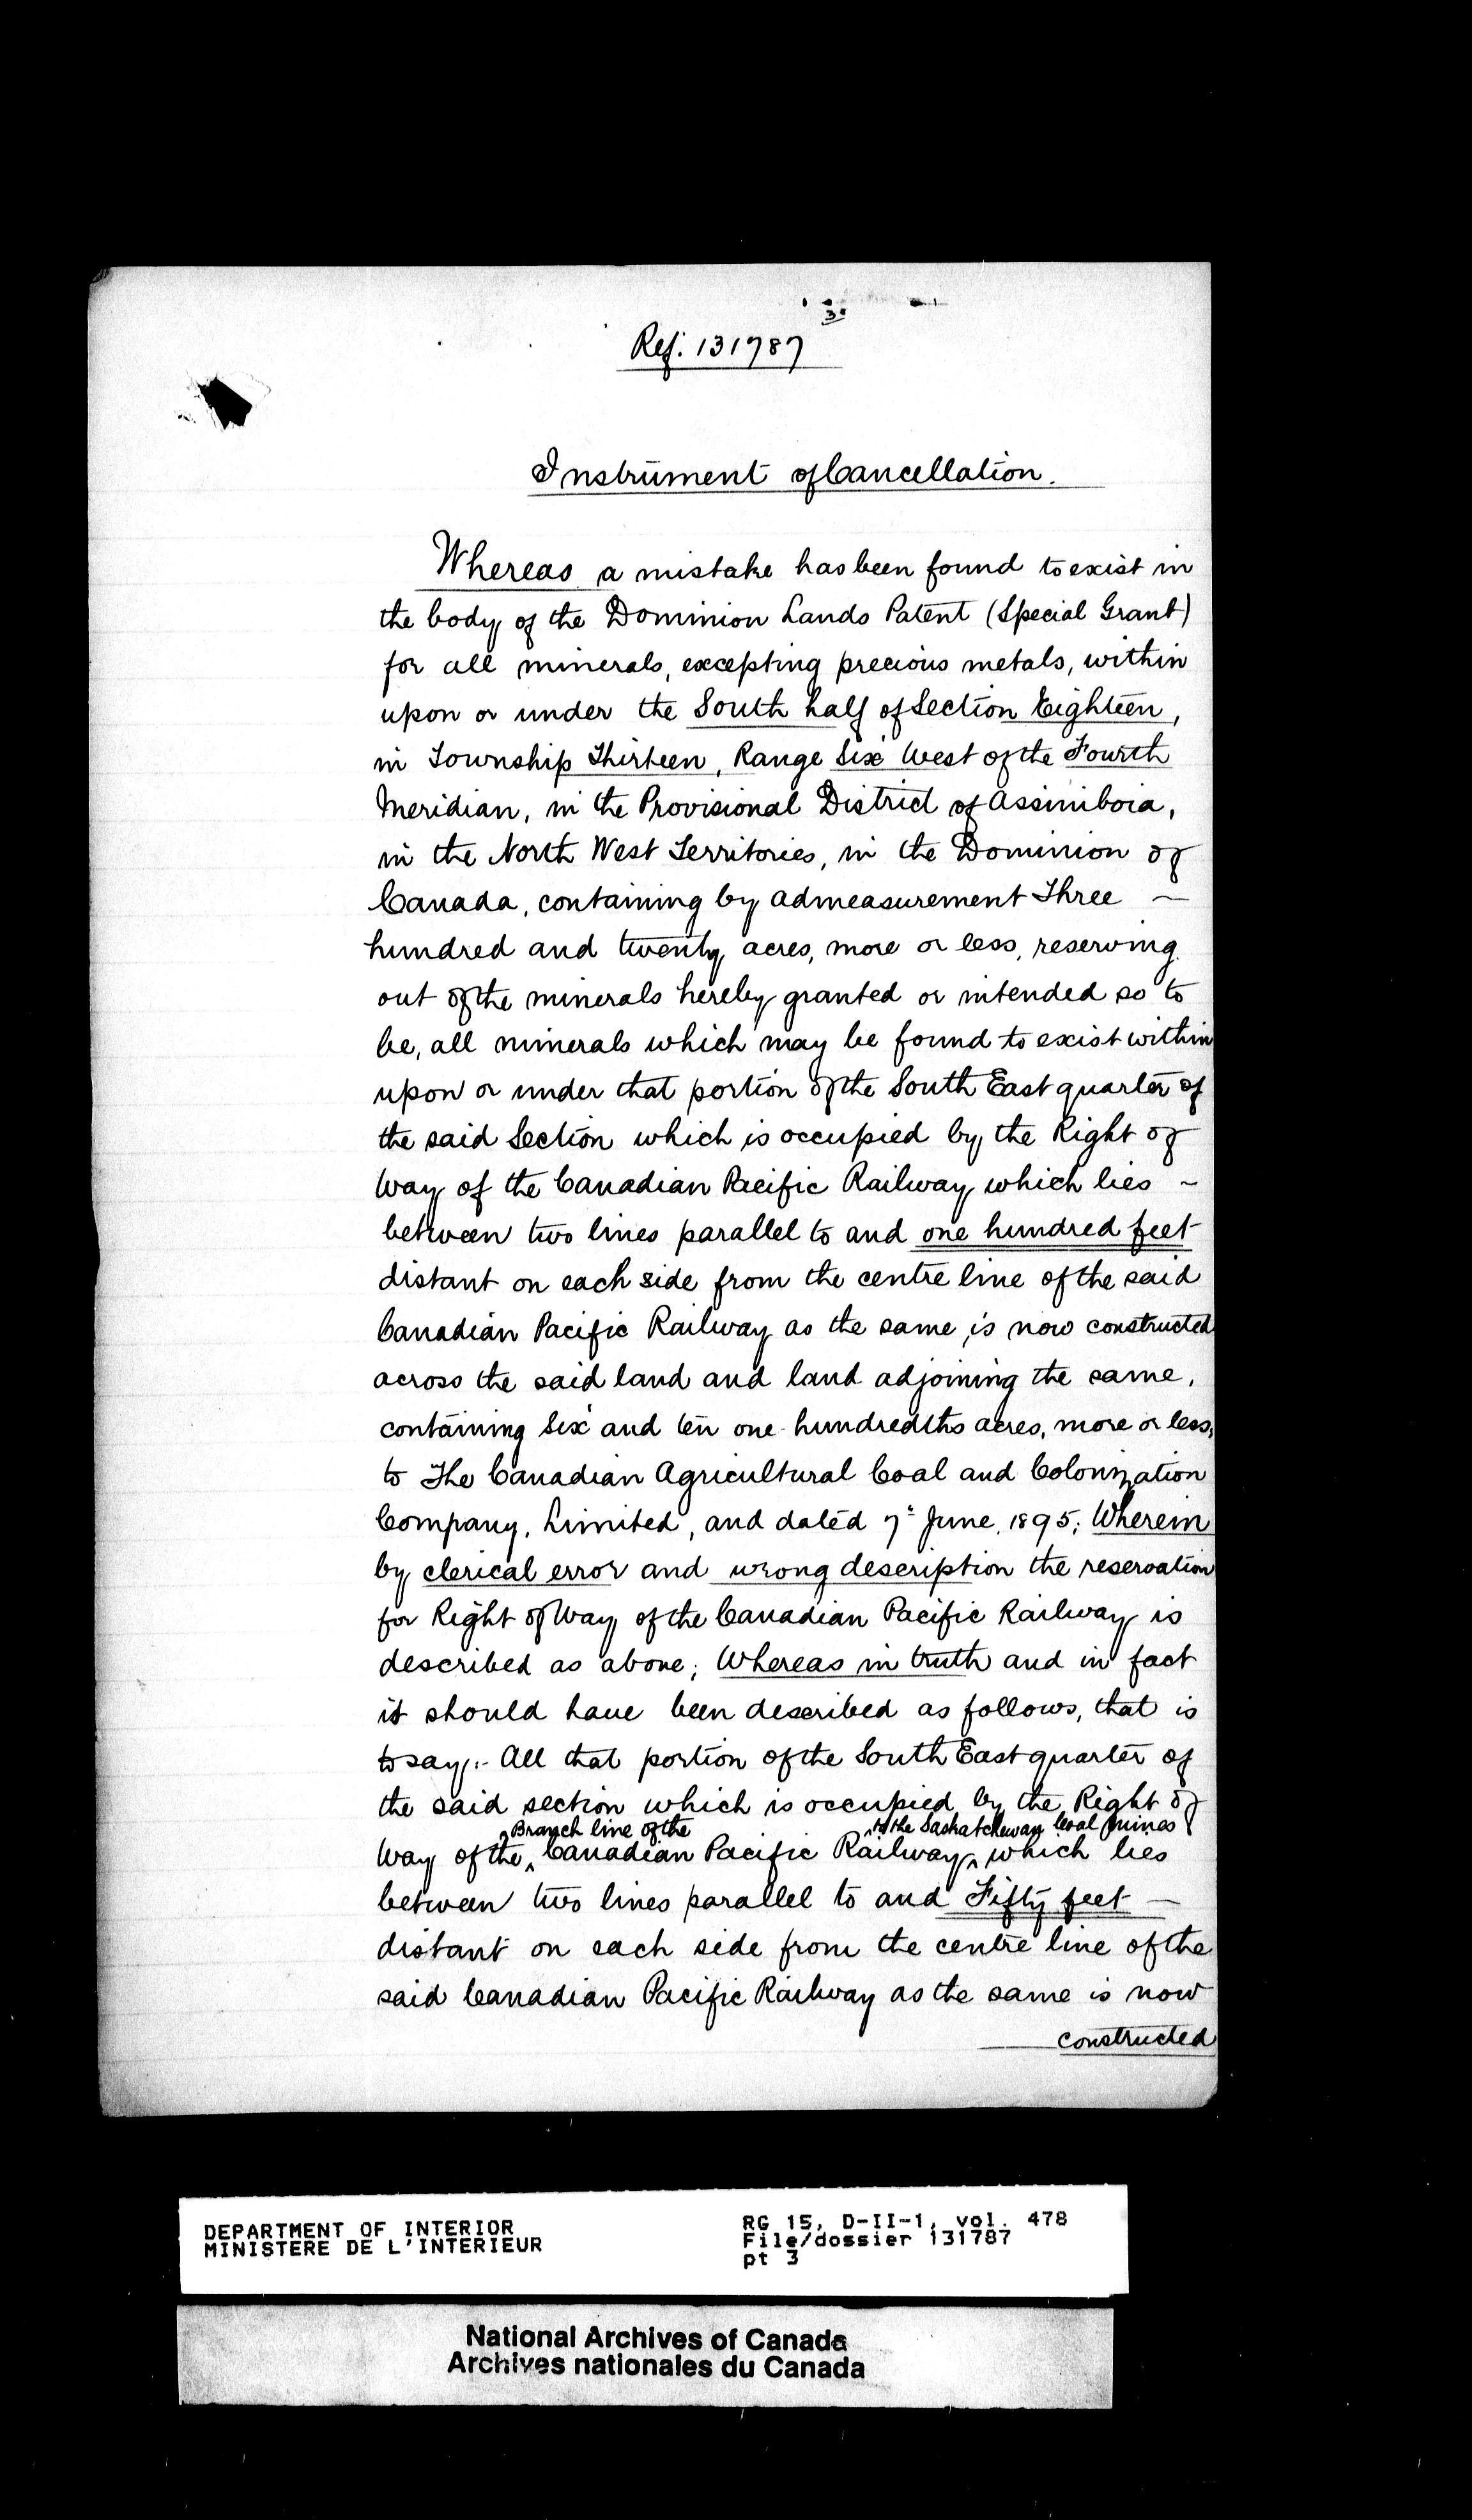 3.
Ref. 131787
Instrument of Cancellation.
Whereas a mistake has been found to exist in
the body of the Dominion Lands Patent (Special Grant)
for all minerals, excepting precious metals, within
upon or under the South half of Section Eighteen,
in Township Thirteen, Range Six West of the Fourth
Meridian, in the Provisional District of Assiniboia,
in the North West Territories, in the Dominion of
Canada, containing by admeasurement Three ~
hundred and twenty acres, more or less, reserving
out of the minerals hereby granted or intended so to
be, all minerals which may be found to exist within
upon or under that portion of the South East quarter of
the said Section which is occupied by the Right of
Way of the Canadian Pacific Railway which lies ~
between two lines parallel to and one hundred feet
distant on each side from the centre line of the said
Canadian Pacific Railway as the same, is now constructed
across the said land and land adjoining the same,
containing Six and ten one-hundredths acres, more or less,
to The Canadian Agricultural Coal and Colonization
Company, Limited, and dated 7th June, 1895; Wherein
by clerical error and wrong description the reservation
for Right of Way of the Canadian Pacific Railway is
described as above; Whereas in truth and in fact
it should have been described as follows, that is
to say:- All that portion of the South East quarter of
the said section which is occupied by the Right of
Branch line of the to the Saskatchewan Coal Mines
Way of the Canadian Pacific Railway which lies
between two lines parallel to and Fifty feet —
distant on each side from the centre line of the
said Canadian Pacific Railway as the same is now
constructed
DEPARTMENT OF INTERIOR
MINISTERE DE L'INTERIEUR
RG 15, D-II-1, vol. 478
File/dossier 131787
pt 3
National Archives of Canada
Archives nationales du Canada